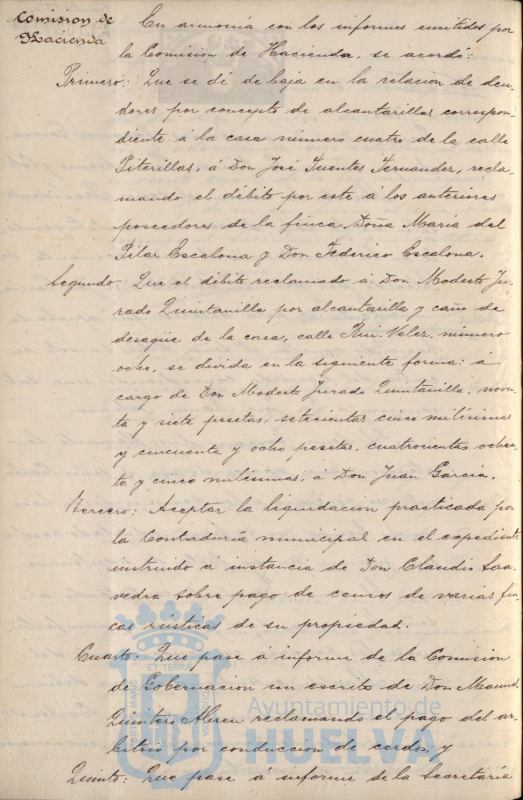 Comision de
Hacienda
En armonia con los informes emitidos por
la Comision de Hacienda, se acordó:
Primero: Que se dé de baja en la relacion de deu-
dores por concepto de alcantarillas correspon-
diente á la casa número cuatro de la calle
Piterillas, á Don José Fuentes Fernandez, recla-
mando el débito por este á los anteriores
poseedores de la finca Doña Maria del
Pilar Escalona y Don Federico Escalona.
Segundo: Que el débito reclamado á Don Modesto Ju-
rado Quintanilla por alcantarilla y caño de
desagüe de la casa, calle Rui-Velez, número
ocho, se divida en la siguiente forma: á
cargo de Don Modesto Jurado Quintanilla, noven-
ta y siete pesetas, setecientas cinco milésimas
y cincuenta y ocho pesetas, cuatrocientas ochen-
ta y cinco milésimas, á Don Juan Garcia.
Tercero: Aceptar la liquidacion practicada por
la Contaduría municipal en el expediente
instruido á instancia de Don Claudio Saa-
vedra sobre pago de censos de varias fin-
cas rústicas de su propiedad.
Cuarto: Que pase á informe de la Comision
de Gobernacion un escrito de Don Manuel
Quintero Abreu reclamando el pago del ar-
bitrio por conduccion de cerdos, y
Quinto: Que pase á informe de la Secretaría
Ayuntamiento de
HUELVA